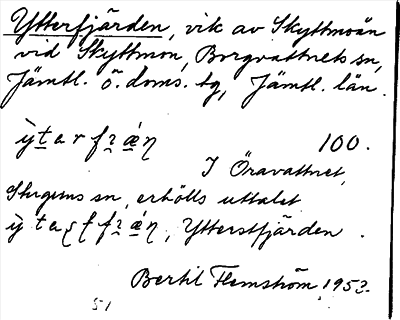 Ytterfjärden, vik av Skyttmoån
vid Skyttmon, Borgvattnets sn,
Jämtl. ö. doms. tg, Jämtl. län.
100.
I Öravattnet,
Stuguns sn, erhölls uttalet
, Ytterstfjärden.
Bertil Flemström 1952.
51